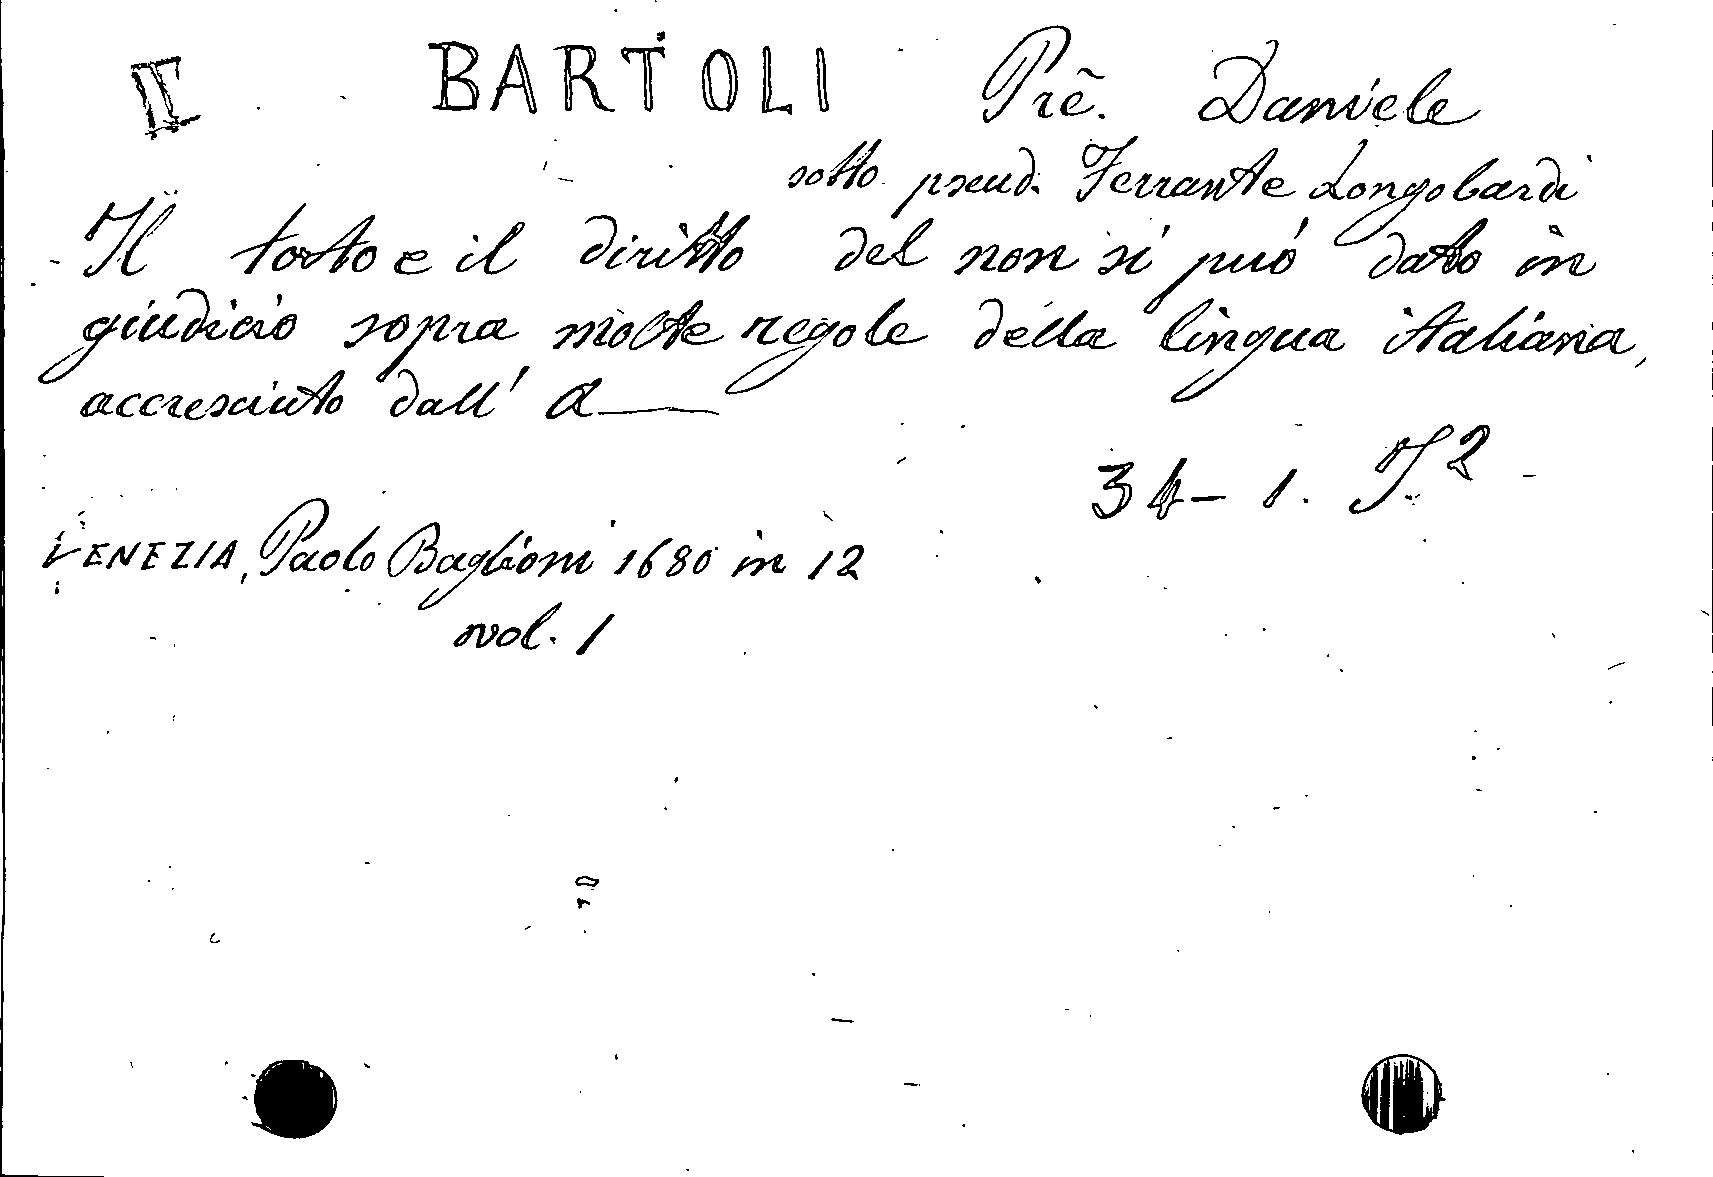 II BARTOLI Prẽ. Daniele
sotto pseud. Ferrante Longobardi
Il torto e il diritto del non si può dato in
giudicio sopra molte regole della lingua italiana,
accresciuto dall' a——
34-1. I²
VENEZIA, Paolo Baglioni 1680 in 12
vol. 1